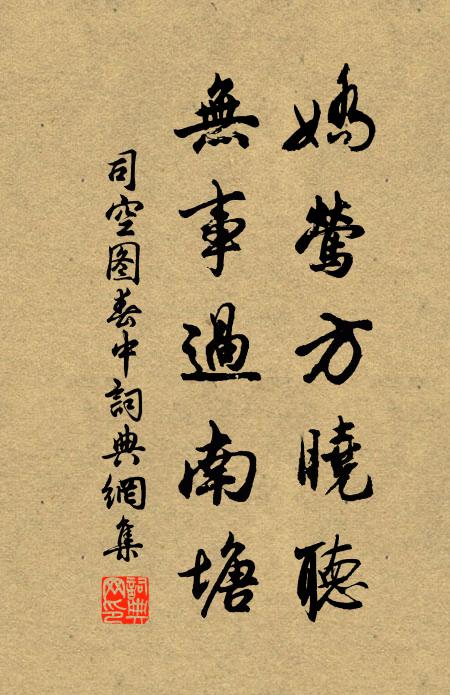 嬌鶯方曉聽
無事過南塘
司空图春中詞典網集
詞典网印